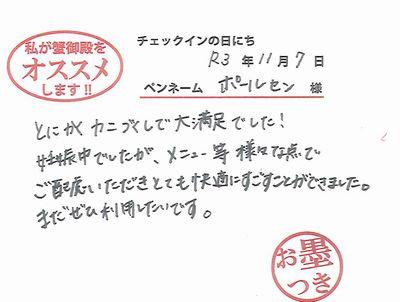 私が蟹御殿を
オススメ
します!!
チェックインの日にち
R3 年 11 月 7 日
ペンネーム ポールセン 様
とにかくカニづくしで大満足でした!
妊娠中でしたが、メニュー等 様々な点で
ご配慮いただきとても快適にすごすことができました。
まだぜひ利用したいです。
お墨
つき